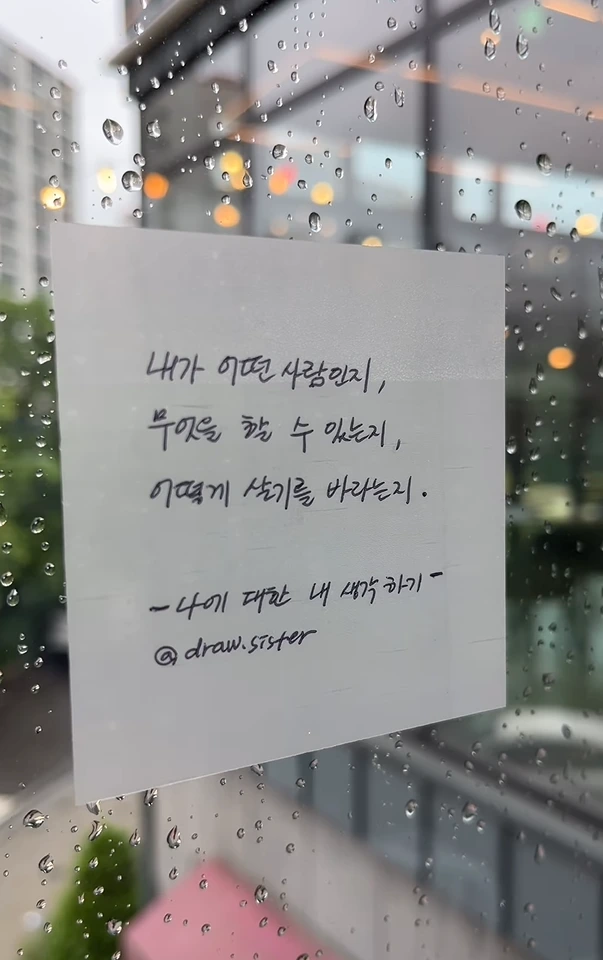 내가 어떤 사람인지,
무엇을 할 수 있는지,
어떻게 살기를 바라는지.
-나에 대한 내 생각하기-
@draw.sister